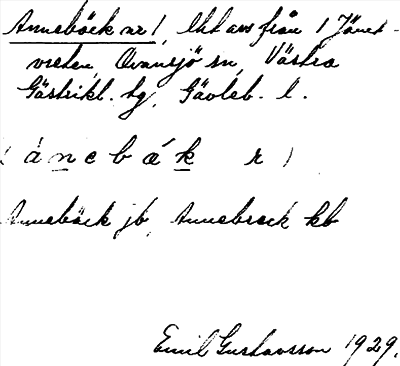 Annebäck nr 1, lht avs från 1 Jäned-
vreten, Ovansjö sn, Västra
Gästrikl. tg, Gävleb. l.
( a n e b ä k r )
Annebäck jb, Annebreck kb
Emil Gustavsson 1929.